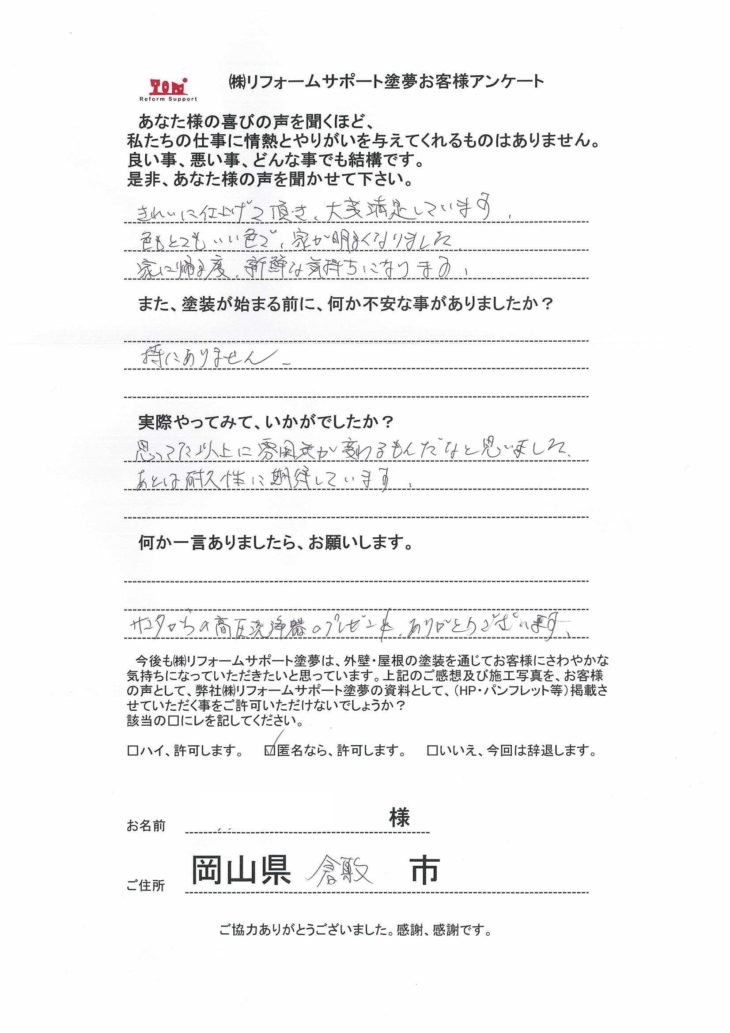 TOM
Reform Support
㈱リフォームサポート塗夢お客様アンケート
あなた様の喜びの声を聞くほど、
私たちの仕事に情熱とやりがいを与えてくれるものはありません。
良い事、悪い事、どんな事でも結構です。
是非、あなた様の声を聞かせて下さい。
きれいに仕上げて頂き、大変満足しています。
色もとてもいい色で、家が明るくなりました
家に帰る度、新鮮な気持ちになります。
また、塗装が始まる前に、何か不安な事がありましたか?
特にありません。
実際やってみて、いかがでしたか?
思ってた以上に雰囲気が変わるもんだなと思いました。
あとは耐久性に期待しています。
何か一言ありましたら、お願いします。
からの高圧洗浄器のプレゼントも、ありがとうございます。
今後も㈱リフォームサポート塗夢は、外壁・屋根の塗装を通じてお客様にさわやかな
気持ちになっていただきたいと思っています。上記のご感想及び施工写真を、お客様
の声として、弊社㈱リフォームサポート塗夢の資料として、(HP・パンフレット等)掲載さ
せていただく事をご許可いただけないでしょうか?
該当の□にレを記してください。
□ハイ、許可します。 ☑匿名なら、許可します。 □いいえ、今回は辞退します。
お名前 様
ご住所 岡山県 倉敷 市
ご協力ありがとうございました。感謝、感謝です。